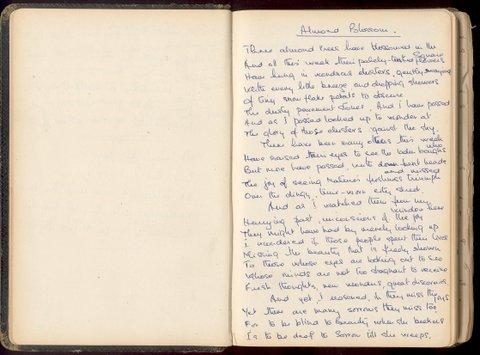 Almond Blossom.
Three almond trees have blossomed in the
Square
And all this week their palely-tinted flowers
Have hung in wondrous clusters, gently swaying
With every little breeze and dropping showers
Of tiny snow flake petals to obscure
The dusty pavement stones. And I have passed
And as I passed looked up to wonder at
The glory of those clusters 'gainst the sky.
There have been many others this week
who
Have raised their eyes to see the laden boughs
But more have passed with down-bent heads
and missed
The joy of seeing Nature's freshness triumph
Over the dingy, time-worn city street.
And as I watched them from my
window here
Hurrying past, unconscious of the joy
They might have had by merely looking up
I wondered if those people spent their lives
Missing the beauty that is freely shown
To those whose eyes are looking out to see
Whose minds are not too stagnant to receive
Fresh thoughts, new wonders, great discoveries.
And yet, I reasoned, if they miss the
joys
Yet there are many sorrows they miss too
For to be blind to beauty when she beckons
Is to be deaf to sorrow till she weeps.